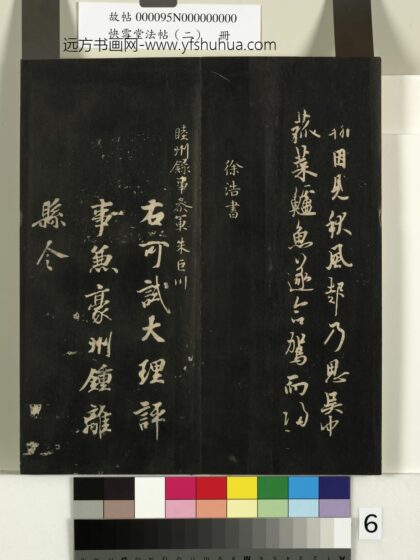 故帖 000095N000000000
快雪堂法帖（二） 册
远方书画网-www.yfshuhua.com
翰因見秋風起乃思吳中
菰菜鱸魚遂命駕而歸
徐浩書
睦州錄事參軍朱巨川
右可試大理評
事兼豪州鍾離
縣令
6